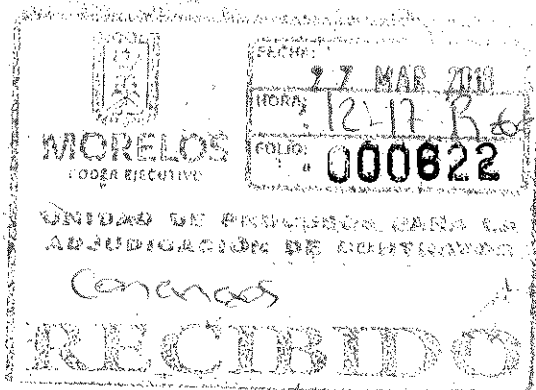 FECHA:
27 MAR 2018
HORA: 12-17
FOLIO: 000622
MORELOS
PODER EJECUTIVO
UNIDAD DE PROCESOS PARA LA
ADJUDICACIÓN DE CONTRATOS
RECIBIDO